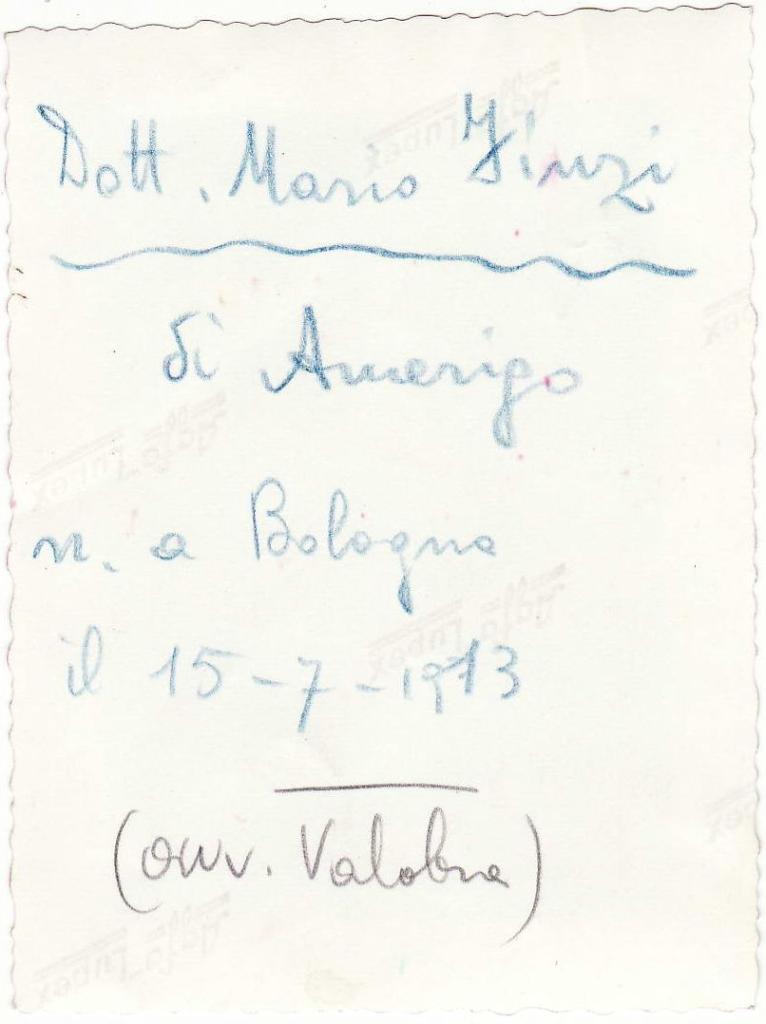 Dott. Mario Finzi
di Amerigo
n. a Bologna
il 15-7-1913
(avv. Valobra)